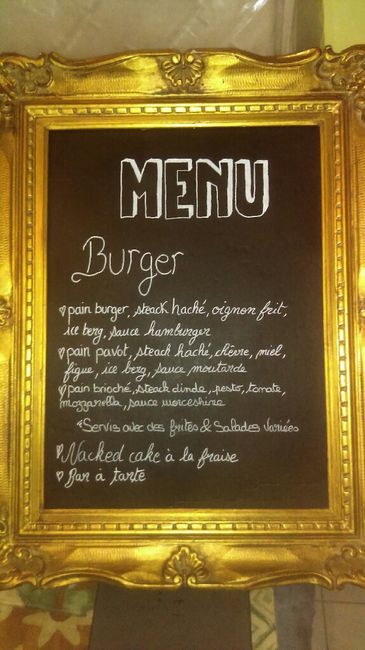 MENU
Burger
pain burger, steack haché, oignon frit,
ice berg, sauce hamburger
pain pavot, steack haché, chèvre, miel,
figue, ice berg, sauce moutarde
pain brioché, steack dinde, pesto, tomate,
mozzarella, sauce worceshire
*Servis avec des frites & Salades Variées
Nacked cake à la fraise
Bar à tarte